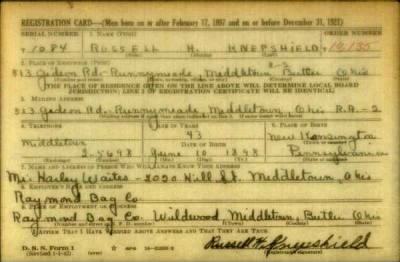 REGISTRATION CARD—(Men born on or after February 17, 1897 and on or before December 31, 1921)
SERIAL NUMBER 1. NAME (Print) ORDER NUMBER
T 1084 RUSSELL H. KNEPSHIELD
2. PLACE OF RESIDENCE (Print) R-2
813 Gideon Rd- Runnymeade, Middletown Butler Ohio
[THE PLACE OF RESIDENCE GIVEN ON THE LINE ABOVE WILL DETERMINE LOCAL BOARD
JURISDICTION; LINE 2 OF REGISTRATION CERTIFICATE WILL BE IDENTICAL]
3. MAILING ADDRESS
813 Gideon Rd.- Runnymeade, Middletown, Ohio R.R.-2
4. TELEPHONE 5. AGE IN YEARS 6. PLACE OF BIRTH
43 New Kensington
Middletown DATE OF BIRTH
2-5698 June 10 1898 Pennsylvania
7. NAME AND ADDRESS OF PERSON WHO WILL ALWAYS KNOW YOUR ADDRESS
Mr. Harley Waites - 2020 Hill St. Middletown, Ohio
8. EMPLOYER'S NAME AND ADDRESS
Raymond Bag Co.
9. PLACE OF EMPLOYMENT OR BUSINESS
Raymond Bag Co. Wildwood Middletown, Butler Ohio
I AFFIRM THAT I HAVE VERIFIED ABOVE ANSWERS AND THAT THEY ARE TRUE.
D. S. S. Form 1
(Revised 1-1-42) Russell H. Knepshield